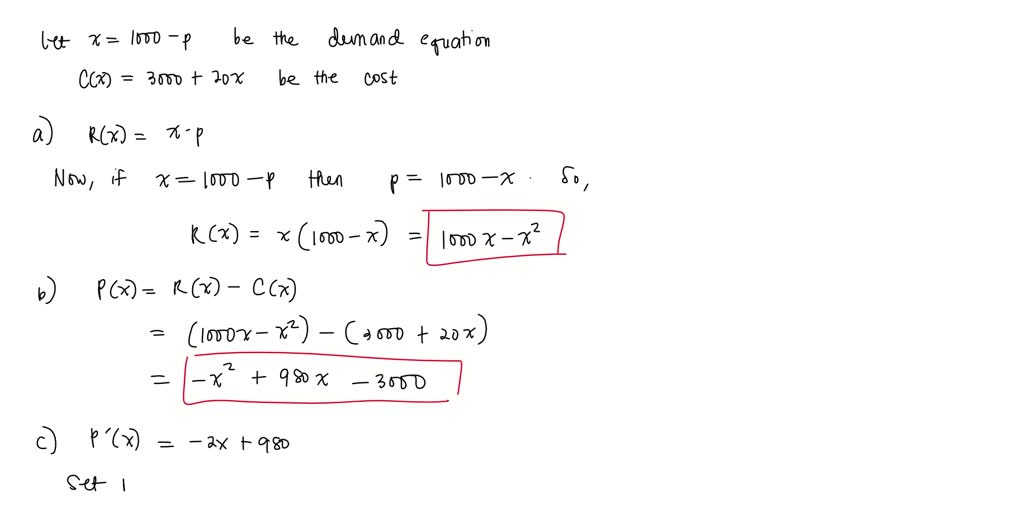 Let x = 1000 - p be the demand equation
C(x) = 3000 + 20x be the cost
a) R(x) = x · p
Now, if x = 1000 - p then p = 1000 - x . So,
R(x) = x (1000 - x) = 1000x - x²
b) P(x) = R(x) - C(x)
= (1000x - x²) - (3000 + 20x)
= -x² + 980x - 3000
c) P'(x) = -2x + 980
Set